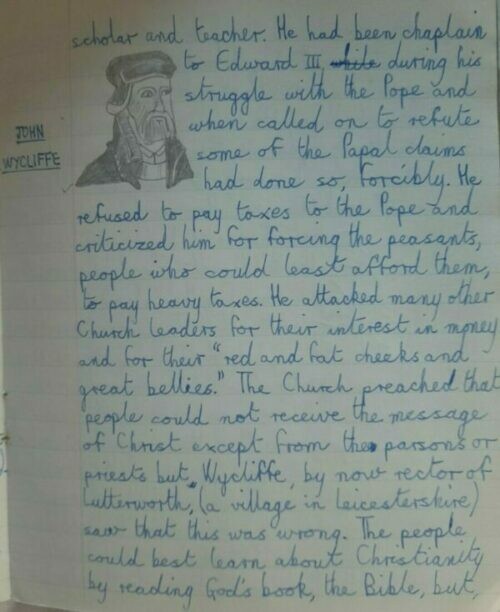 scholar and teacher. He had been chaplain
to Edward III, while during his
struggle with the Pope and
when called on to refute
JOHN
WYCLIFFE
some of the Papal claims
had done so, forcibly. He
refused to pay taxes to the Pope and
criticized him for forcing the peasants,
people who could least afford them,
to pay heavy taxes. He attacked many other
Church leaders for their interest in money
and for their "red and fat cheeks and
great bellies." The Church preached that
people could not receive the message
of Christ except from the parsons or
priests but, Wycliffe, by now rector of
Lutterworth, (a village in Leicestershire)
saw that this was wrong. The people
could best learn about Christianity
by reading God's book, the Bible, but,